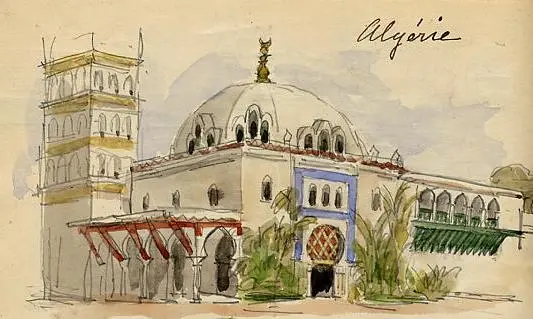 Algérie